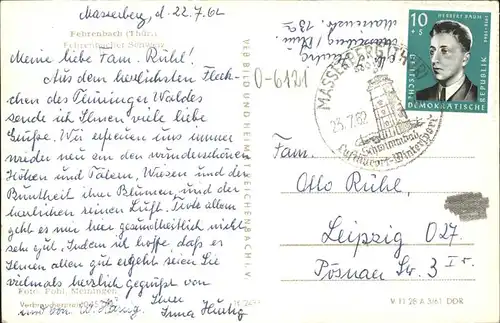 Masserberg, d. 22.7.62
Fehrenbach (Thür.)
Fehrenbacher Schweiz
Meine liebe Fam. Rühl!
Aus dem herzlichsten Fleck-
chen des Thüringer Waldes
sende ich Ihnen viele liebe
Grüße. Wir erfreuen uns immer
wieder neu an den wunderschönen
Höhen und Tälern, Wiesen und der
Buntheit ihrer Blumen, und der
herrlichen reinen Luft. Trotz allem
geht es mir hier gesundheitlich nicht
sehr gut. Indem ich hoffe, daß es
Ihnen allen gut ergeht seien Sie
vielmals herzlich gegrüßt von
Foto: Pohl, Meiningen
Ihrer
Verbraucherpreis
und von
Irma
VEB BILD UND HEIMAT REICHENBACH I. V.
0-6121
10
+5
HERBERT BAUM
DEUTSCHE
DEMOKRATISCHE REPUBLIK
MASSERBERG (THÜR)
23.7.62
Luftkurort-Wintersport
Fam.
Otto Rühl,
Leipzig O27.
Pösnaer Str. 3 I r.
V 11 28 A 3/61 DDR